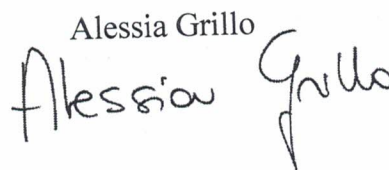 Alessia Grillo
Alessia Grillo